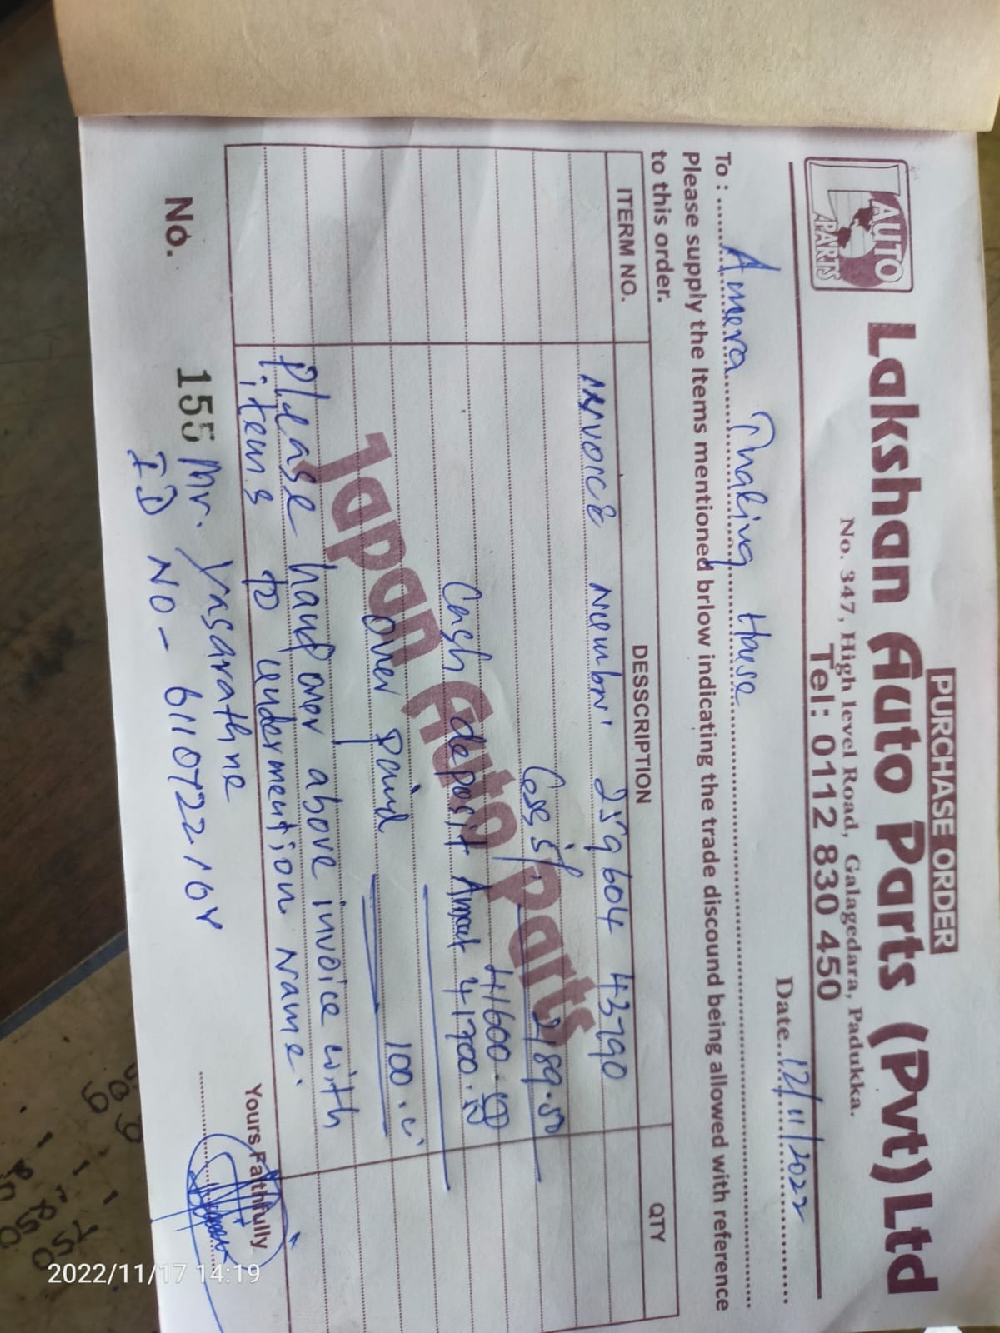 PURCHASE ORDER
AUTO
PARTS
Lakshan Auto Parts (Pvt) Ltd
No. 347, High level Road, Galagedara, Padukka.
Tel: 0112 830 450
Date..17/11/2022
To : Amera Trading House
Please supply the Items mentioned brlow indicating the trade discound being allowed with reference
to this order.
ITERM NO. DESSCRIPTION QTY
Invoice Number 259604 43790
Less 5% 2189.50
41600.50
Cash deposit Amount 41700.50
Over Paid 100.00
Please hand over above invoice with
items to undermention name.
Japan Auto Parts
Yours Faithfully
No. 155
Mr. Yasarathne
ID No -
750
2022/11/17 14:19